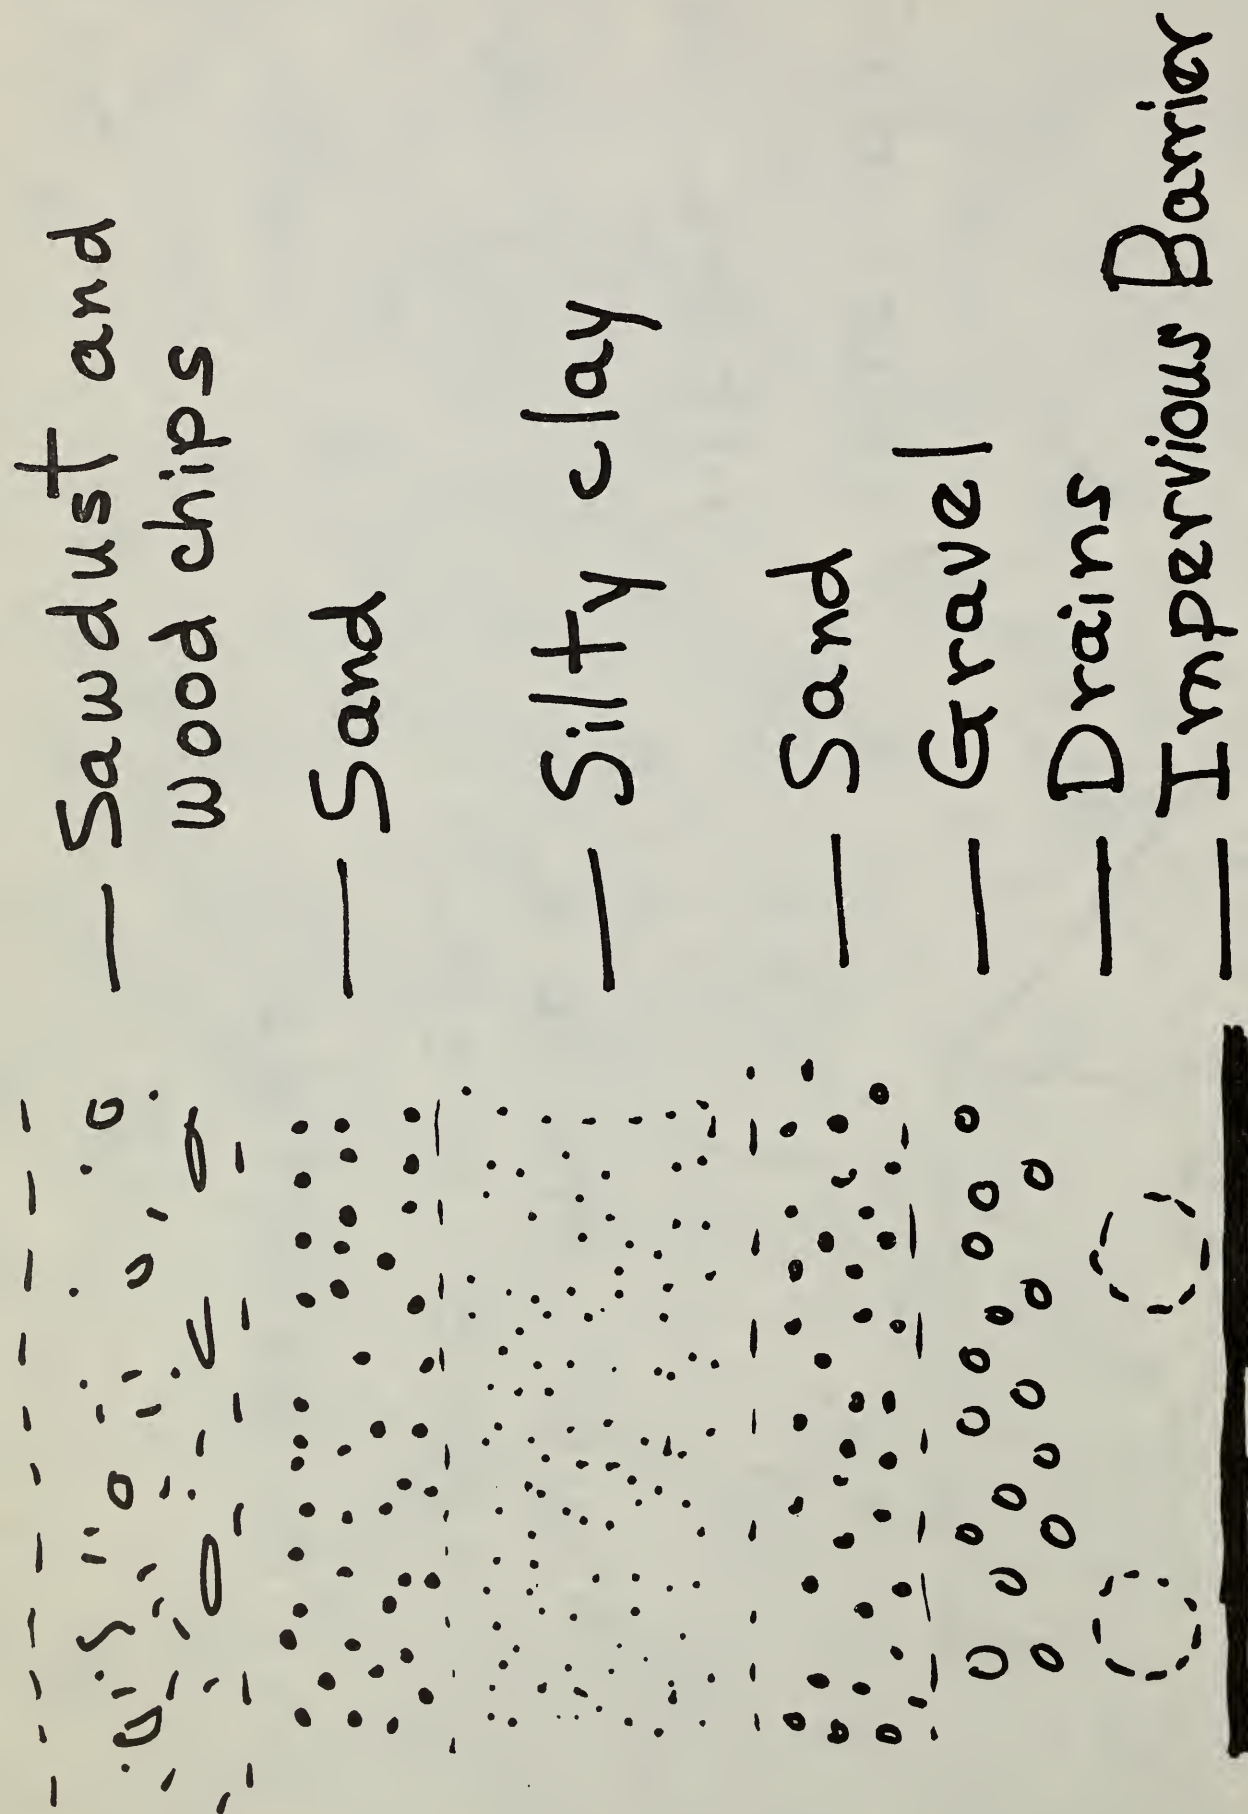 Sawdust and
wood chips
Sand
Silty clay
Sand
Gravel
Drains
Impervious Barrier